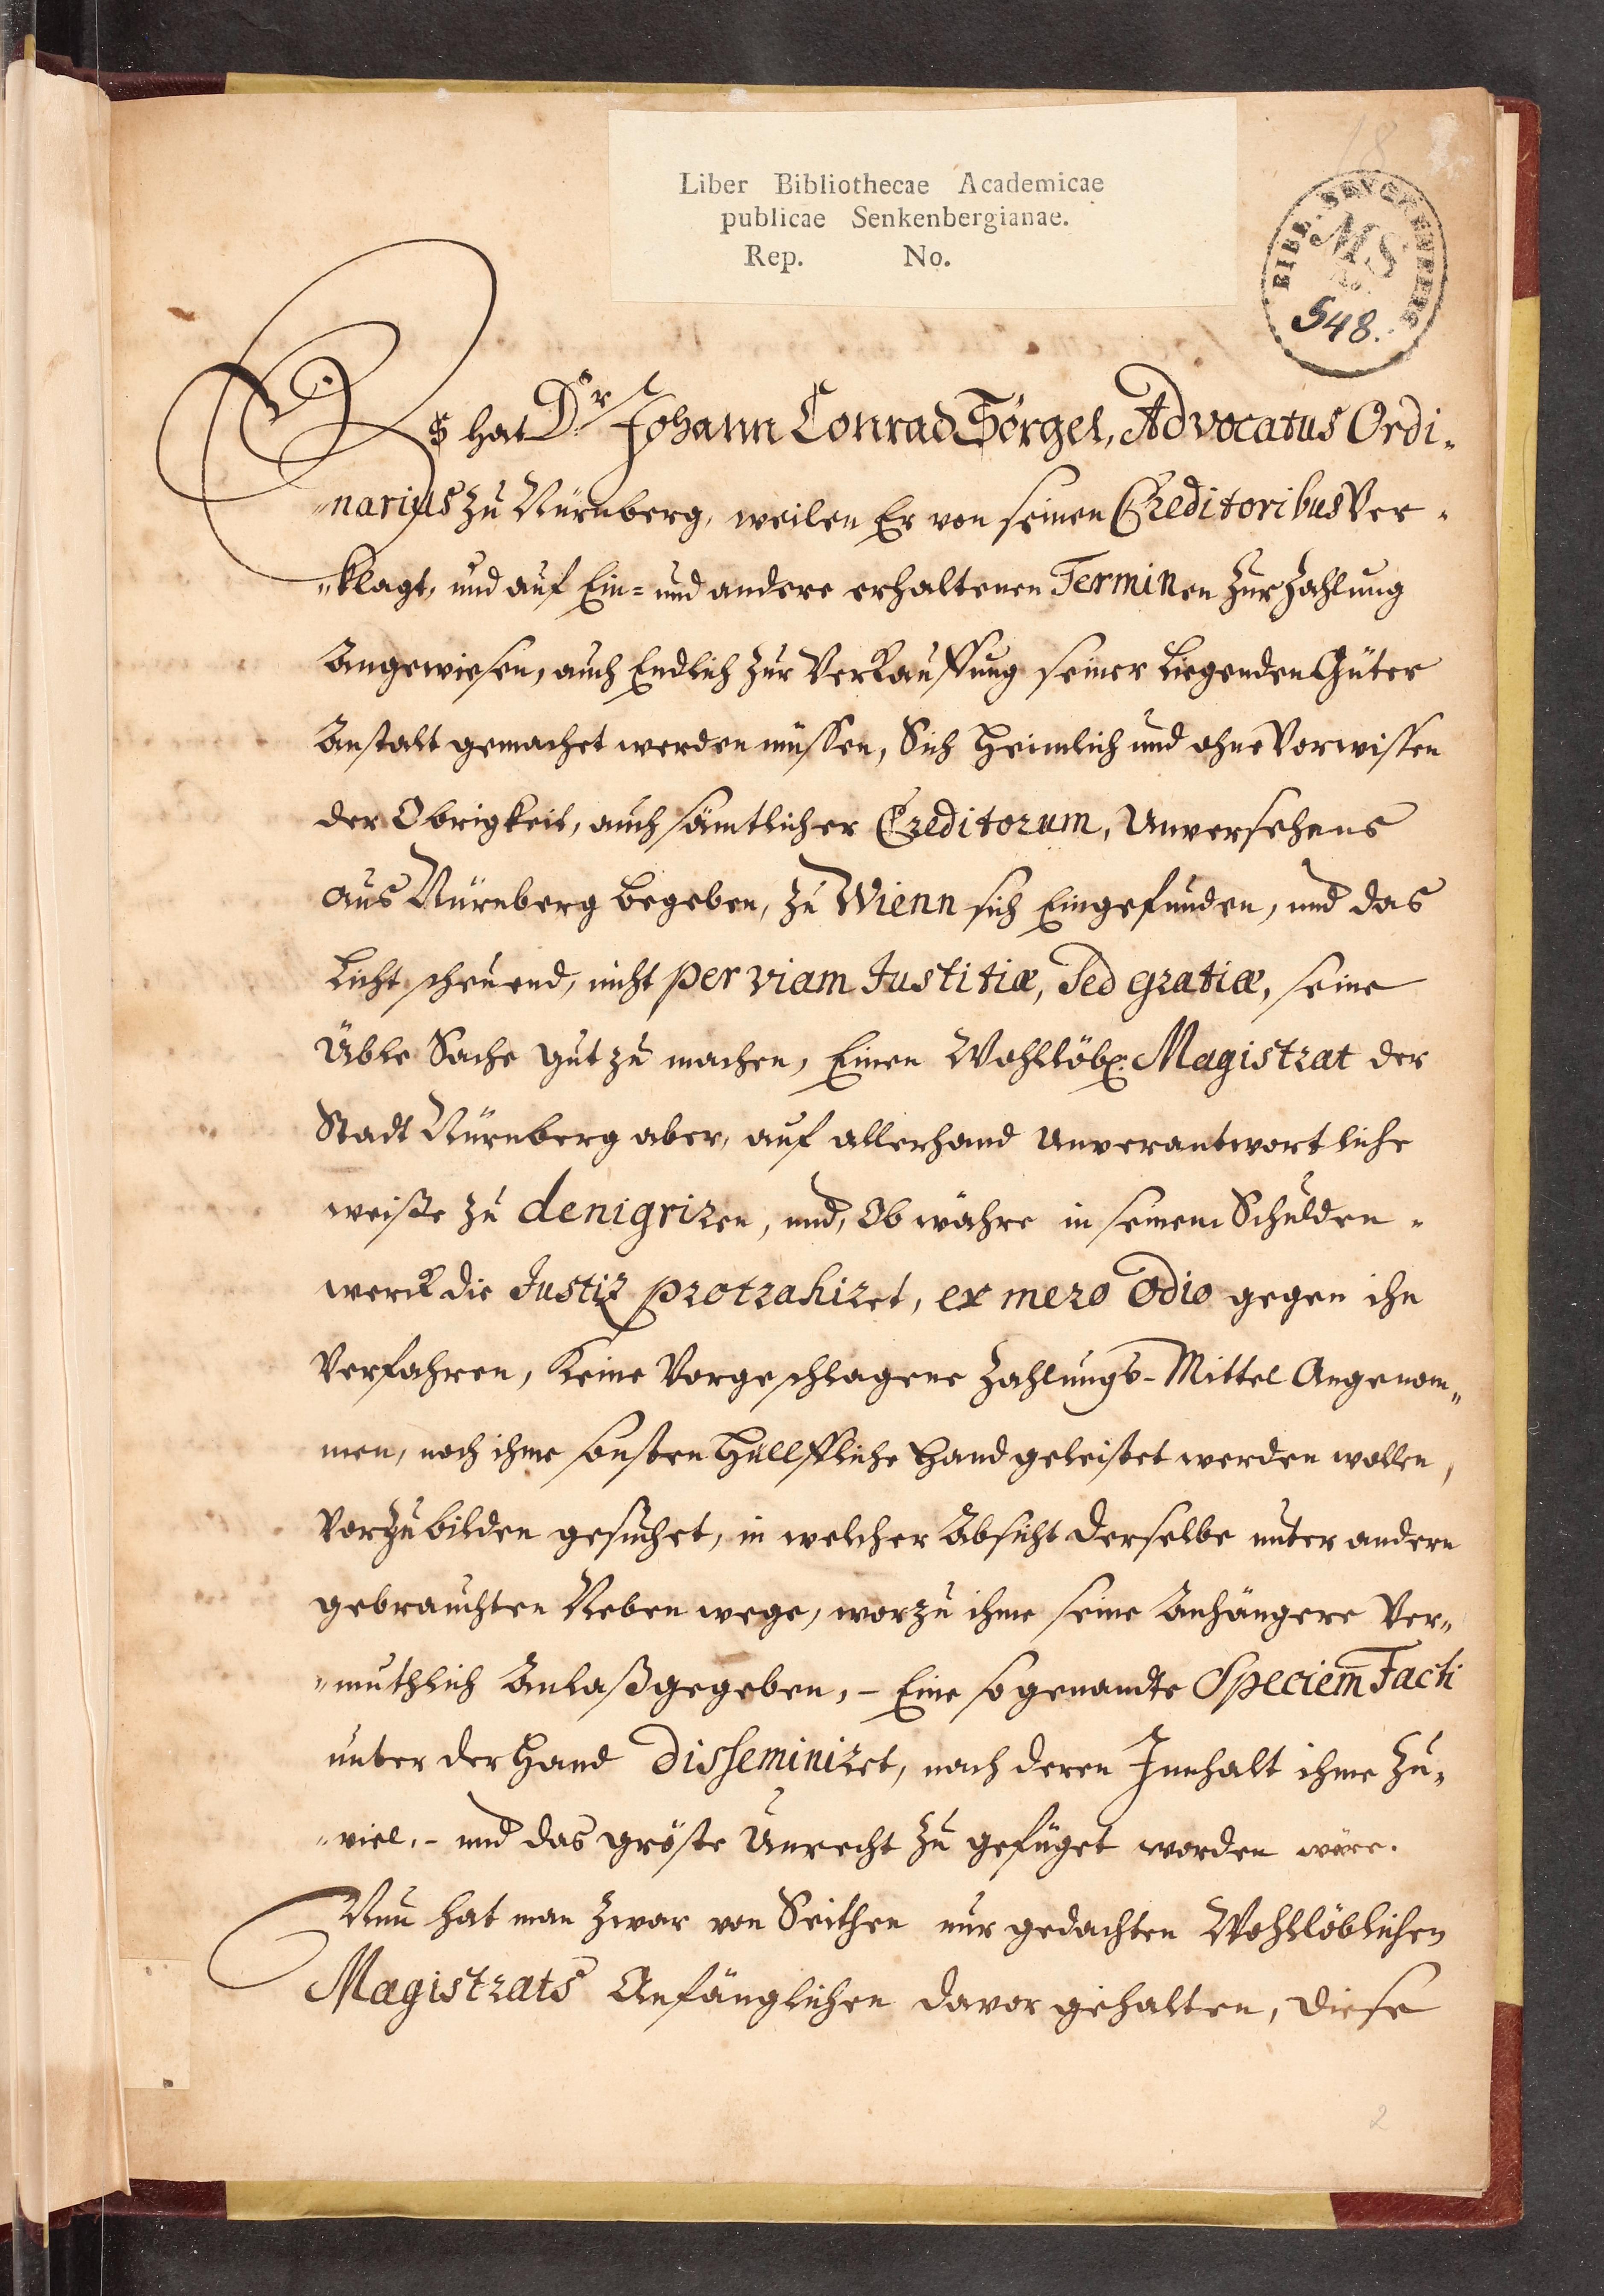 18
Liber Bibliothecae Academicae
publicae Senkenbergianae.
Rep. No.
BIBL. SENCKENBERG
MS
548.
Es hat Dr Johann Conrad Sörgel, Advocatus Ordi-
narius zu Nürnberg, weilen Er von seinen Creditoribus Ver-
klagt, und auf Ein- und andere erhaltenen Terminen zur Zahlung
Angewiesen, auch Endlich zur Verkauffung seiner liegenden Güter
Anstalt gemachet werden müssen, Sich Heimlich und ohne Vorwissen
der Obrigkeit, auch sämtlicher Creditorum, Unversehens
aus Nürnberg begeben, zu Wienn sich Eingefunden, und das
Licht scheuend, nicht per viam Justitiæ, Sed gratiæ, seine
Üble Sache gut zu machen, Einen Wohllöbl. Magistrat der
Stadt Nürnberg aber, auf allerhand Unverantwortliche
weiße zu denigriren, und, Ob währe in seinem Schulden-
werck die Justiz protrahiret, ex mero Odio gegen ihn
Verfahren, Keine Vorgeschlagene Zahlungs-Mittel Angenom-
men, noch ihme sonsten Hüllffliche Hand geleistet werden wollen,
Vorzubilden gesuchet, in welcher Absicht derselbe unter andern
gebrauchten Neben wege, worzu ihme seine Anhängere Ver-
muthlich Anlaß gegeben, - Eine so genandte Speciem Facti
unter der Hand disseminiret, nach deren Innhalt ihme Zu-
viel, - und das gröste Unrecht zu gefüget worden wäre.
Nun hat man zwar von Seithen nur gedachten Wohllöblichen
Magistrats Anfänglichen davor gehalten, diese
2